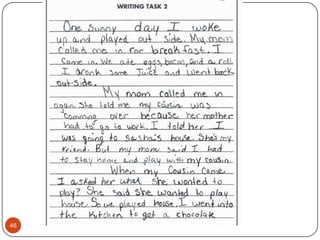 WRITING TASK 2
One sunny day I woke
up and played out side. My mom
called me in for breakfast. I
Came in. We ate eggs, bacon, and a roll.
I drank some Juice and went back
out-side.
My mom called me in
again. She told me my cousin was
comming over because her mother
had to go to work. I told her I
was going to Sasha's house. She's my
friend. But my mom said I had
to stay home and play with my cousin.
When my Cousin Come
I asked her what she wanted to
play? She said she wanted to play
house. So we played house. I went into
the Kitchen to get a chocolate
46